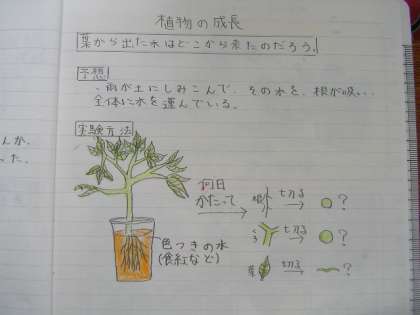 植物の成長
葉から出た水はどこから来たのだろう。
予想
・雨が土にしみこんで、その水を、根が吸い、
全体に水を運んでいる。
実験方法
何日
かたって
根 切る ?
くき 切る ?
葉 切る ?
色つきの水
(食紅など)
んか。
った。